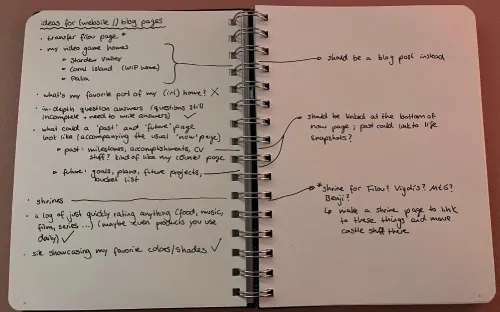 ideas for (website //) blog pages
• transfer Filou page *
• my video game homes
▸ Stardew Valley
▸ Coral Island (WIP home)
▸ Palia
• what's my favorite part of my (irl) home? ✗
• in-depth question answers (questions still
incomplete + need to write answers) ✓
• what could a 'past' and 'future' page
look like (accompanying the usual 'now' page)
▸ past: milestones, accomplishments, CV
stuff? kind of like my page
▸ future: goals, plans, future projects,
bucket list
• shrines
• a log of just quickly rating anything (food, music,
film, series ...) (maybe even products you use
daily) ✓
• site showcasing my favorite colors/shades ✓
should be a blog post instead
should be linked at the bottom of
now page; past could link to life
snapshots?
* shrine for Filou? Vigdis? MCG?
Benji?
↳ make a shrine page to link
to these things and move
castle stuff there